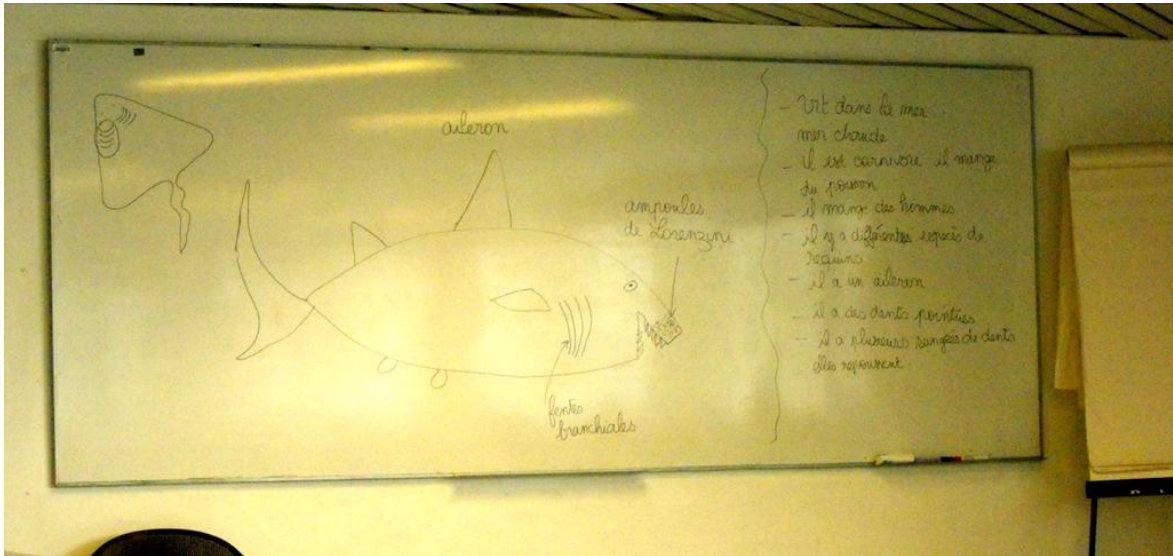 aileron
ampoules
de Lorenzini
fentes
branchiales
- Vit dans la mer
mer chaude
- il est carnivore il mange
du poisson
- il mange des hommes
- il y a différentes espèces de
requins
- il a un aileron
- il a des dents pointues
- il a plusieurs rangées de dents
elles repoussent